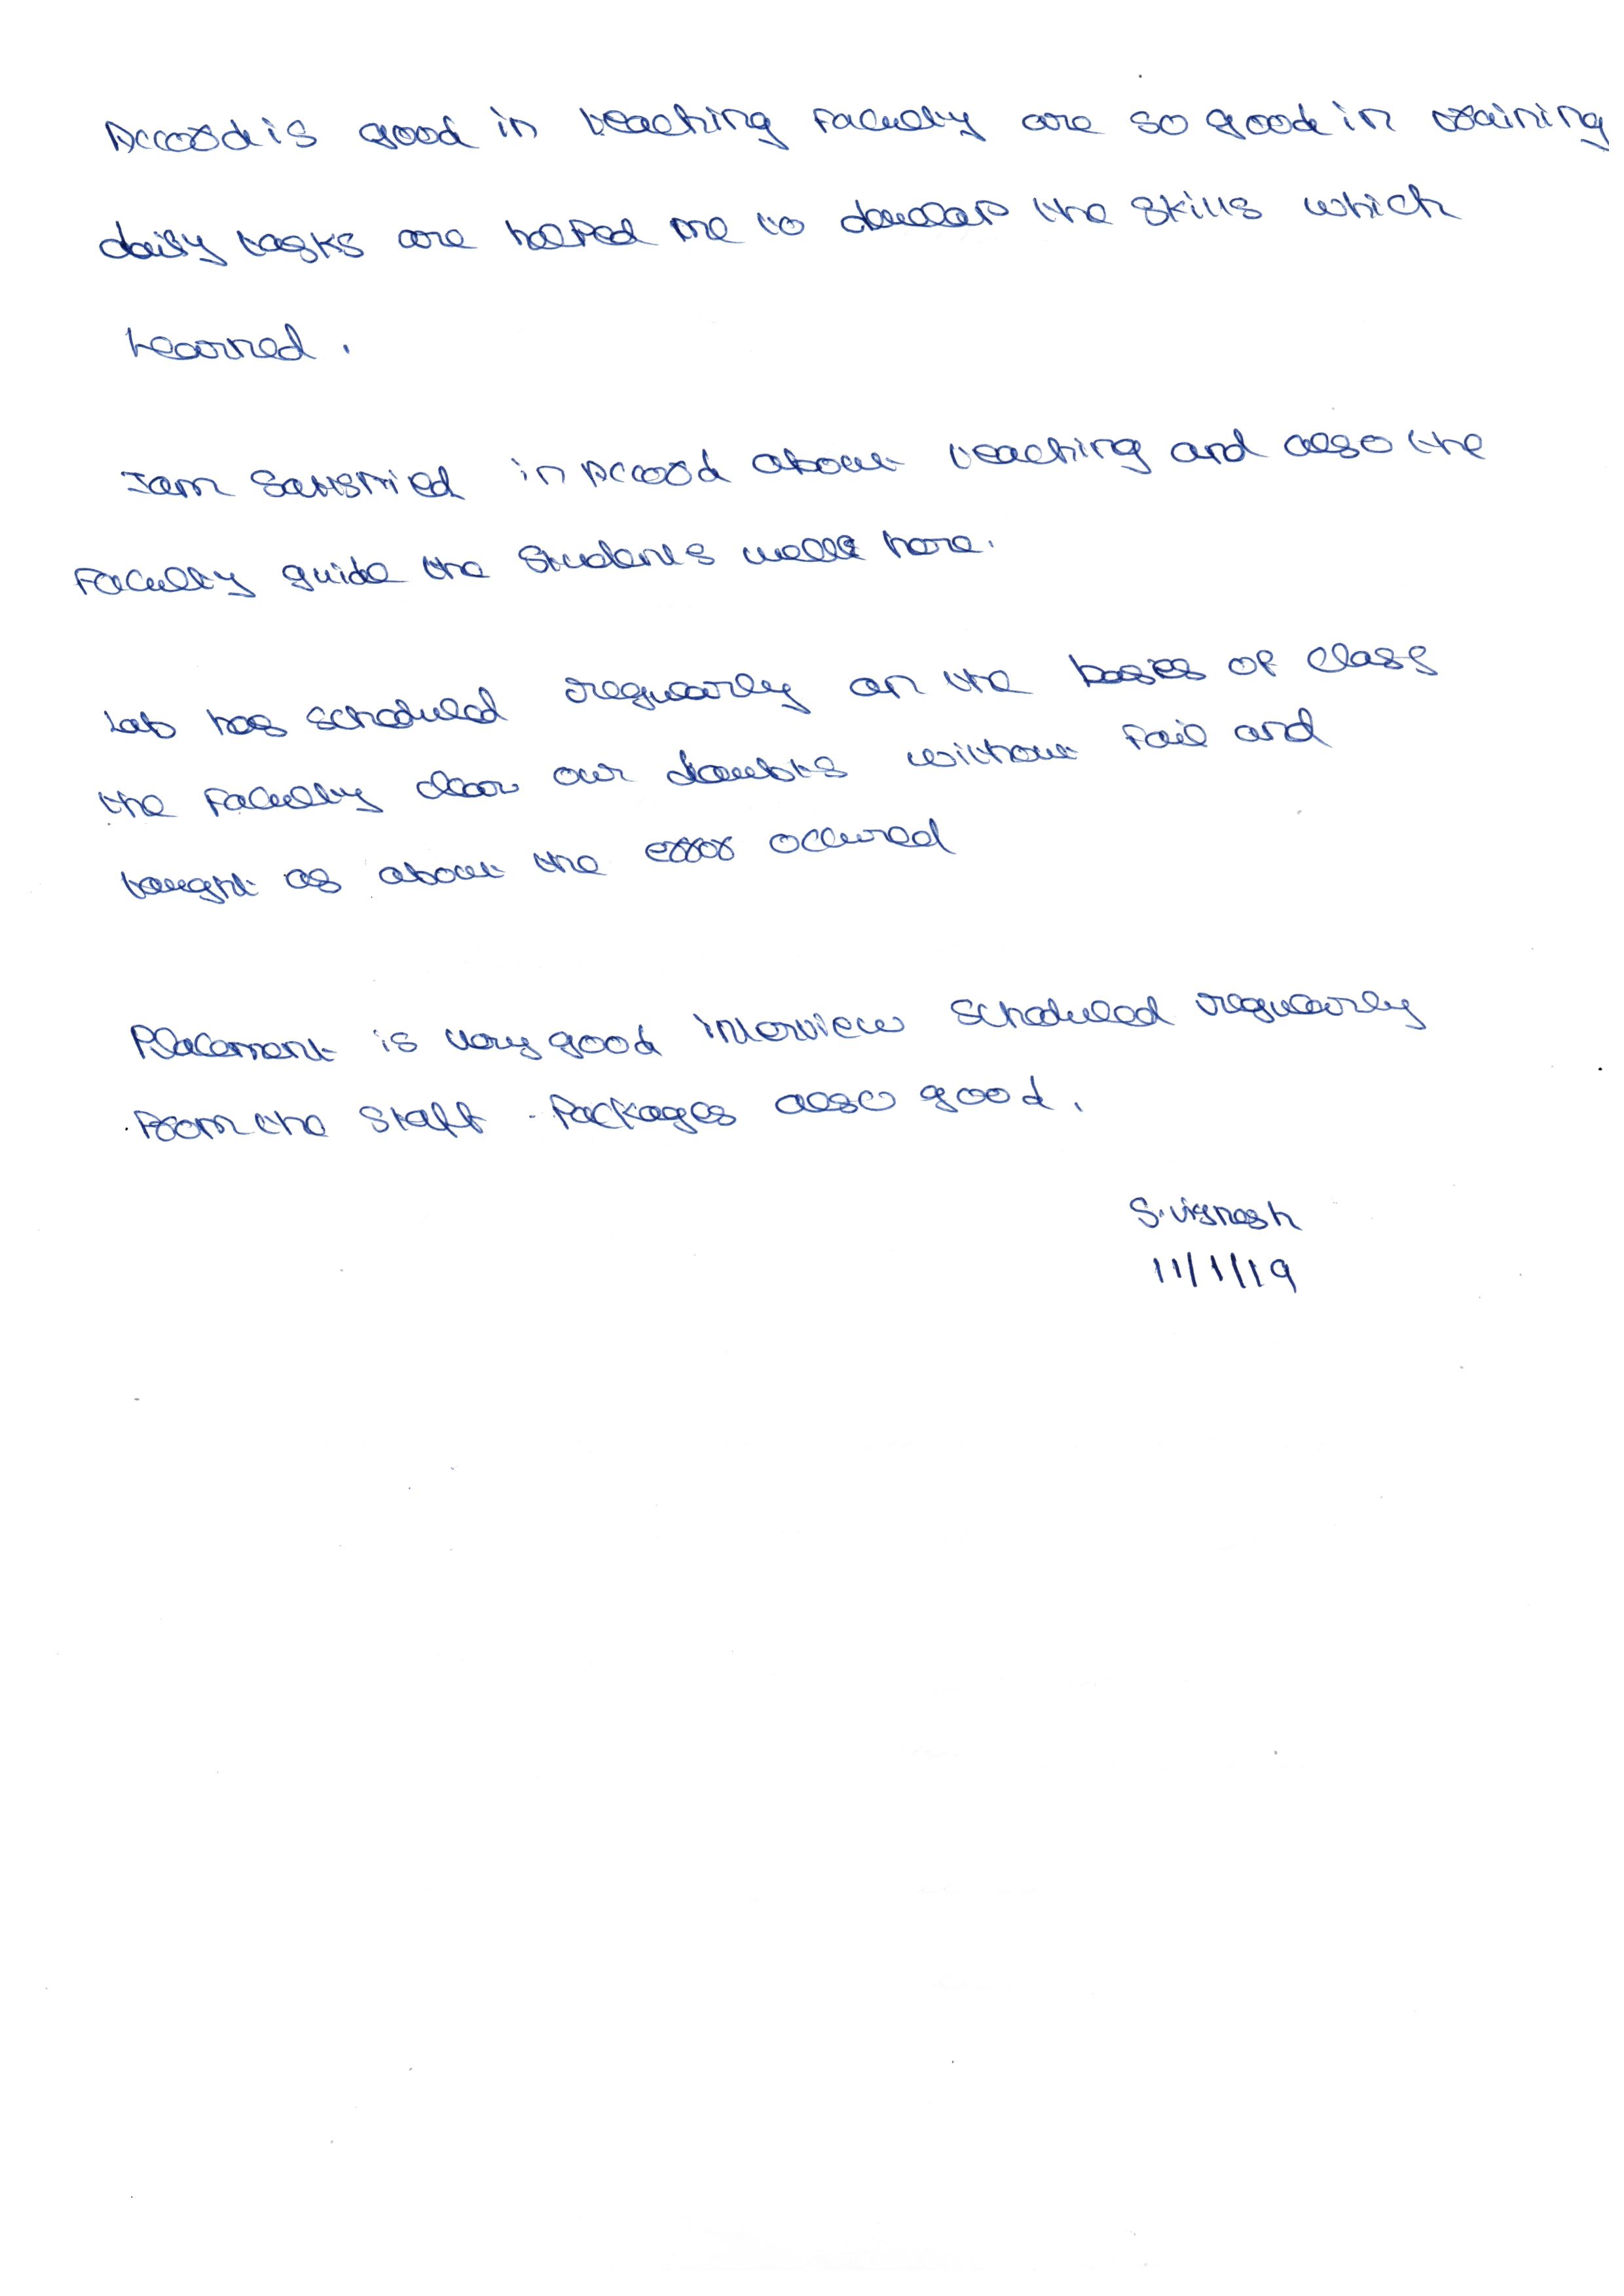 Accord is good in teaching Faculty are so good in training
daily tasks are helped me to develop the skills which
learned.
I am Satisfied in Accord about teaching and also the
Faculty guide the Students well here.
Lab has scheduled regularly on the basies of class
the Faculty clear our doubts without fail and
taught as about the error occured
Placement is very good interview scheduled regularly
From the staff. Packages also good.
S. Vignesh
11/1/19